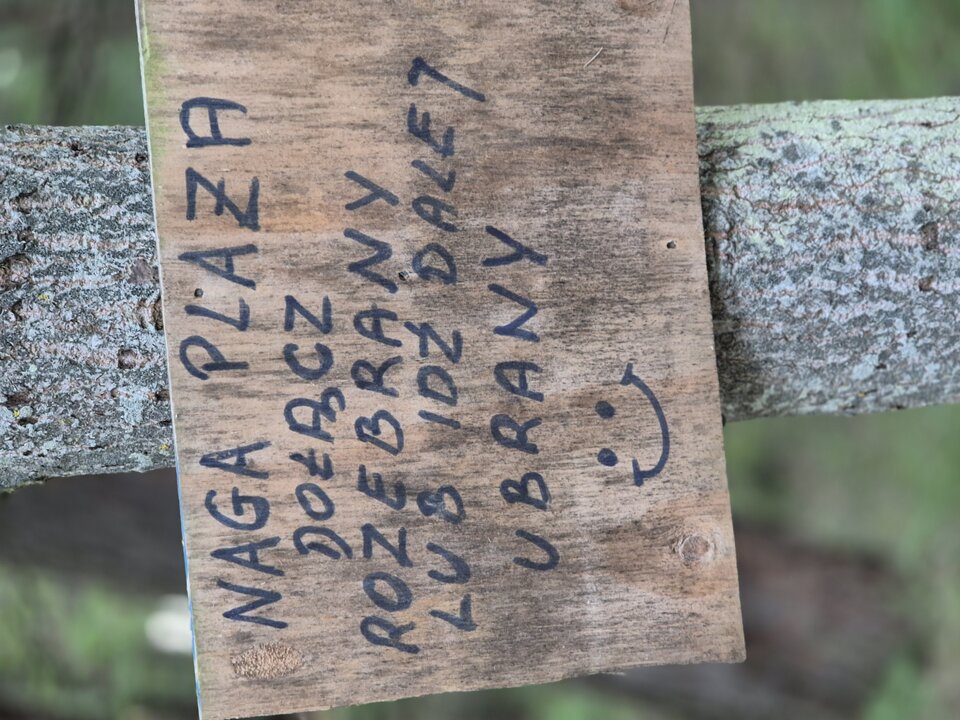 NAGA PLAŻA
DOŁĄCZ
ROZEBRANY
LUB IDZ DALEJ
UBRANY